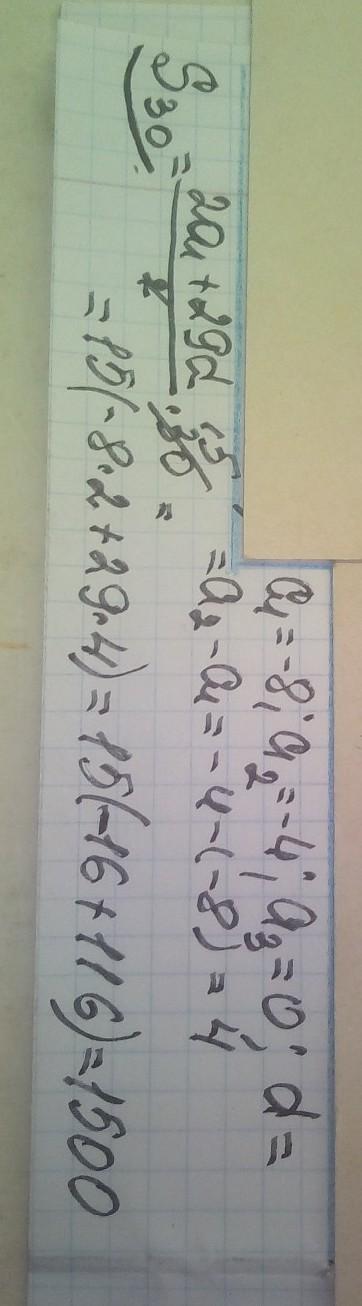 a₁ = -8; a₂ = -4; a₃ = 0; d =
= a₂ - a₁ = -4 - (-8) = 4
S₃₀ = (2a₁ + 29d)/2 · 30 15 =
= 15(-8·2 + 29·4) = 15(-16 + 116) = 1500